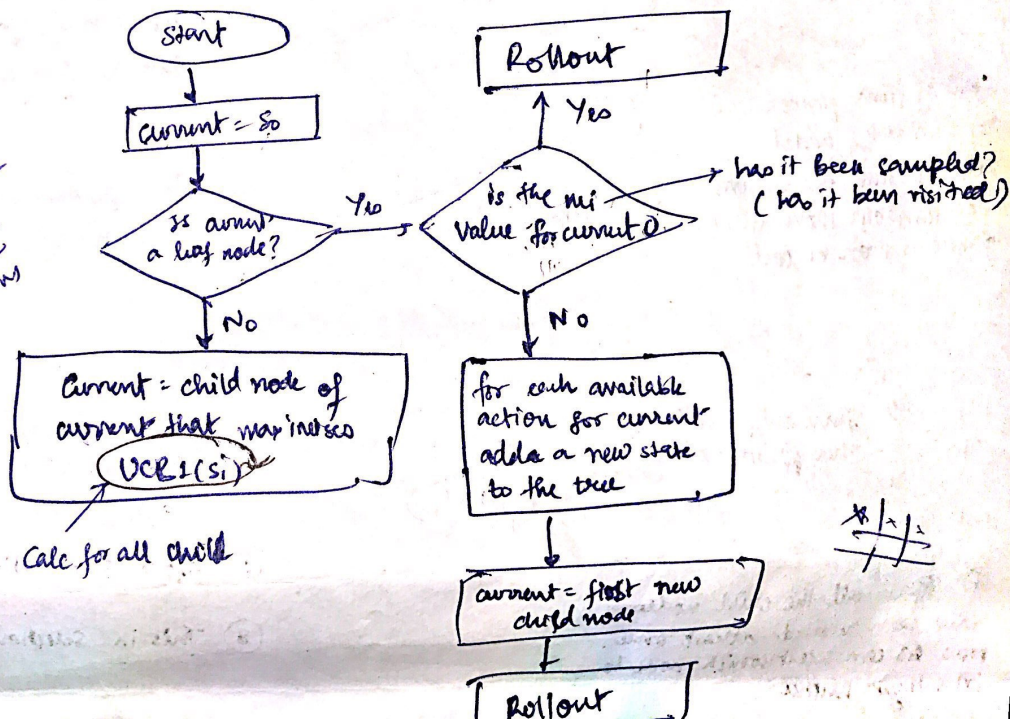 Start
current = S0
Is current
a leaf node?
Yes
No
Current = child node of
current that maximises
UCB1(Si)
Calc for all child
Rollout
Yes
is the ni
value for current 0
has it been sampled?
(has it been visited)
No
for each available
action for current
adda a new state
to the tree
current = first new
child node
Rollout